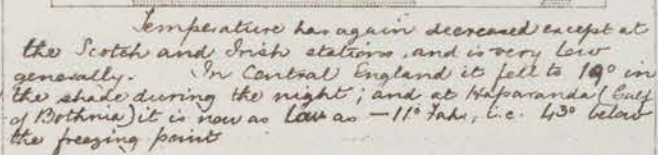 Temperature has again decreased except at
the Scotch and Irish stations, and is very low
generally. In Central England it fell to 19° in
the shade during the night; and at Haparanda (Gulf
of Bothnia) it is now as low as -11° Fah., i.e. 43° below
the freezing point